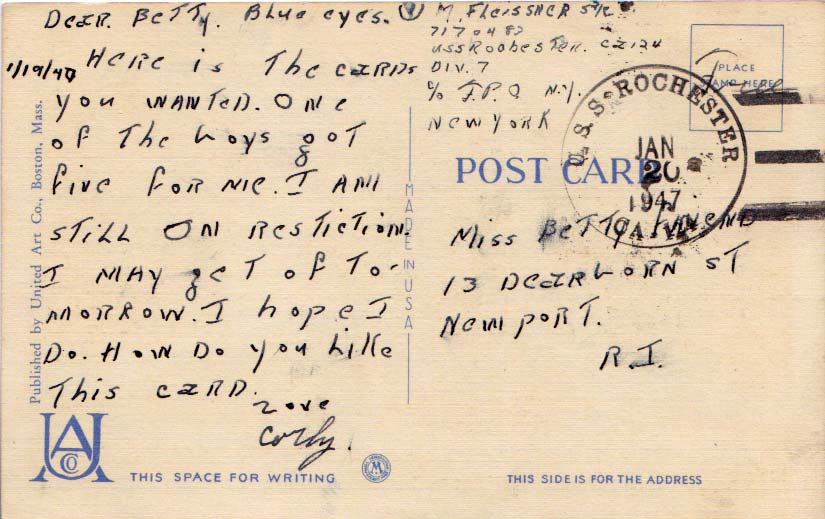 Dear. Betty. Blue eyes.
1/19/47 Here is The cards
you wanted. One
of The boys got
five for me. I am
still on restiction.
I may get of To-
morrow. I hope I
Do. How Do you Like
This card.
Love
Corky.
M. Fleissner S1/c
7170483
USS Roohester. CA124
DIV. 7
c/o F.P.O. N.Y.
New York
PLACE
STAMP HERE
U.S.S. ROCHESTER
JAN
20
1947
POST CARD
Miss Betty
13 Dearborn ST
Newport.
R.I.
MADE IN USA
Published by United Art Co., Boston, Mass.
UACo
THIS SPACE FOR WRITING
THIS SIDE IS FOR THE ADDRESS